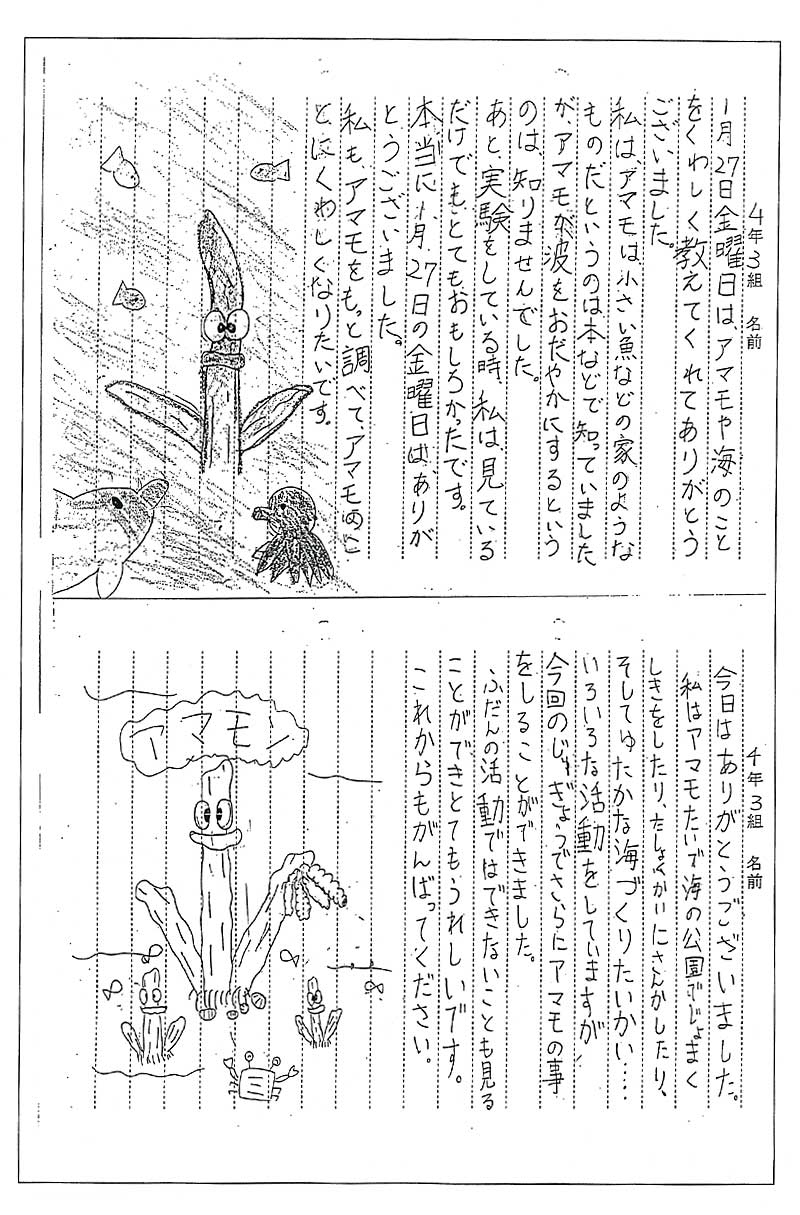 4年3組 名前
1月27日金曜日は、アマモや海のこと
をくわしく教えてくれてありがとう
ございました。
私は、アマモは小さい魚などの家のような
ものだというのは本などで知っていました
が、アマモが波をおだやかにするという
のは、知りませんでした。
あと、実験をしている時、私は、見ている
だけでも、とてもおもしろかったです。
本当に1月27日の金曜日は、ありが
とうございました。
私も、アマモをもっと調べて、アマモのこ
とにくわしくなりたいです。
4年3組 名前
今日はありがとうございました。
私はアマモたいで海の公園でじょまく
しきをしたり、たしょくかいにさんかしたり、
そしてゆたかな海づくりたいかい……
いろいろな活動をしていますが
今回のじゅぎょうでさらにアマモの事
をしることができました。
ふだんの活動ではできないことも見る
ことができとてもうれしいです。
これからもがんばってください。
アマモン